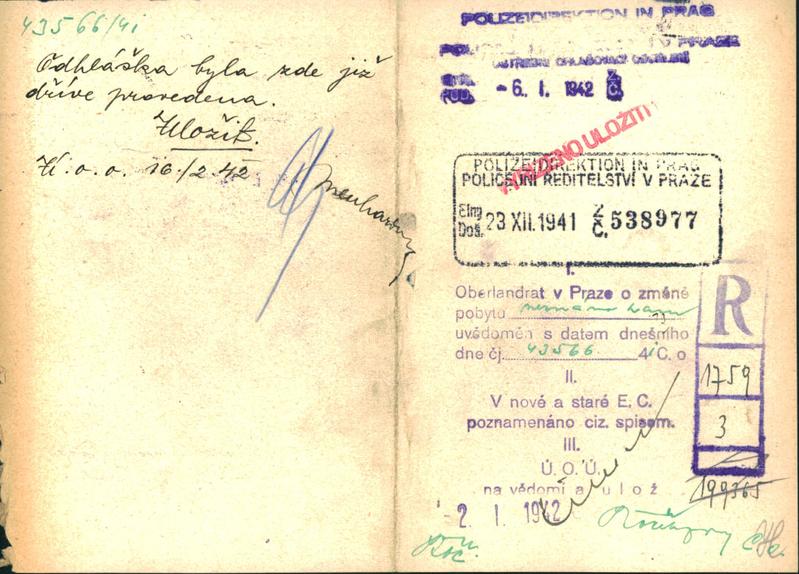 43566/41
Odhláška byla zde již
dříve provedena.
Uložit.
Ú.o.o. 16/2.42
POLIZEIDIREKTION IN PRAG
V PRAZE
ÚSTŘEDNÍ OHLAŠOVACÍ ODDĚLENÍ
- 6. I. 1942 Č.
VYŘÍZENO ULOŽITI
POLIZEIDIREKTION IN PRAG
POLICEJNÍ ŘEDITELSTVÍ V PRAZE
Eing. Z.
Doš. 23 XII. 1941 Č. 538977
I.
Oberlandrat v Praze o změně
pobytu neznámo kam
uvědoměn s datem dnešního
dne čj. 43566 41 C. o
II.
V nové a staré E. C.
poznamenáno ciz. spisem.
III.
Ú. O. Ú.
na vědomí a ulož
- 2. I. 1942
R
1759
3
199365